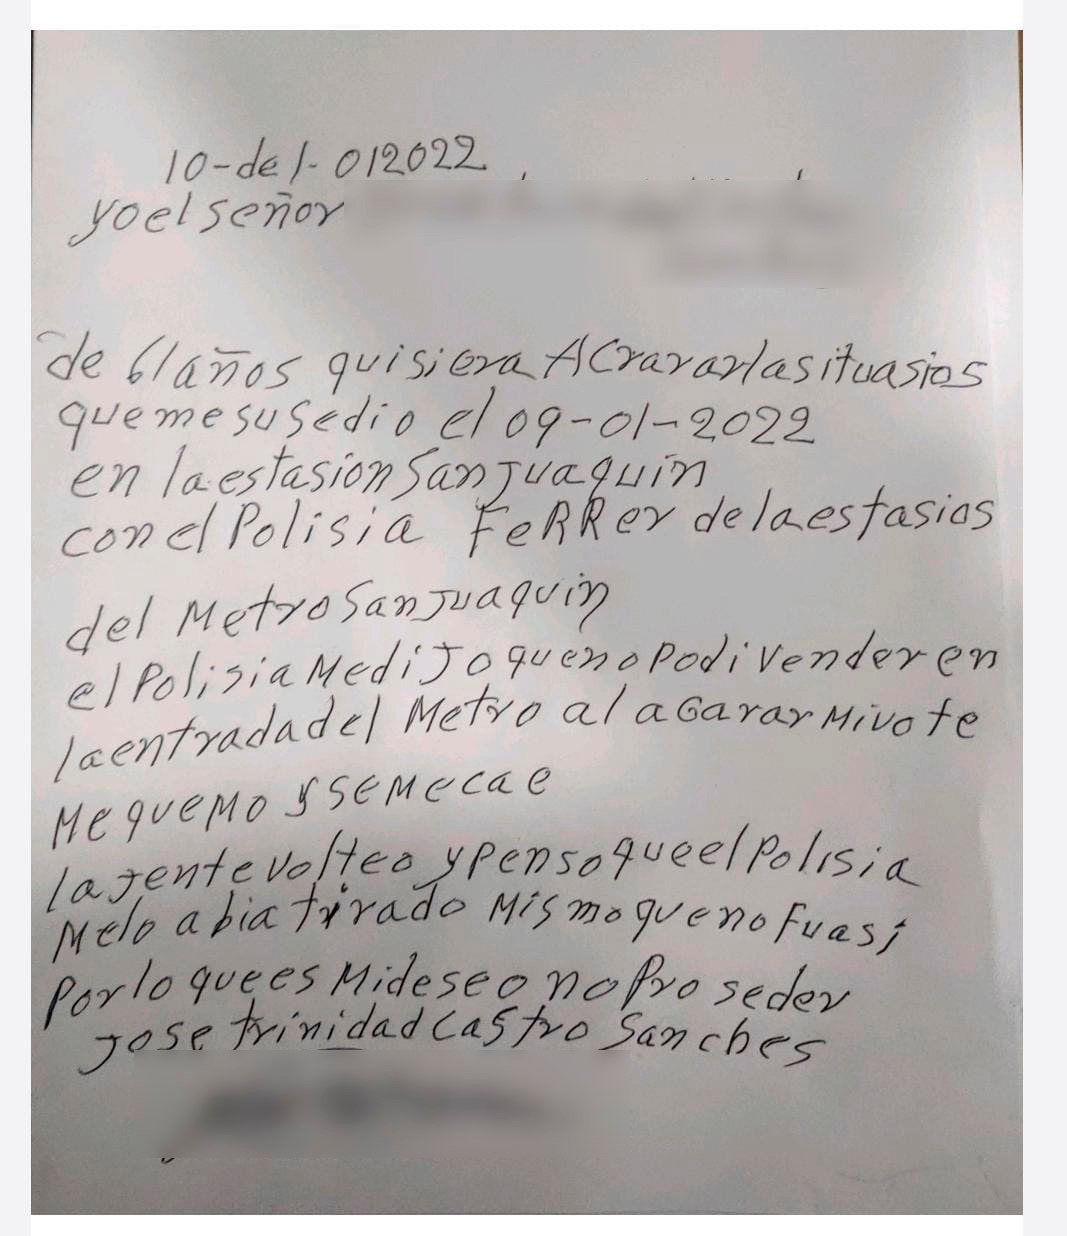 10-de 1-012022
yo el señor
de 61 años quisiera ACrararlasituasios
que me susedio el 09-01-2022
en la estasion San Juaquin
con el Polisia FeRRer de la estasios
del Metro San Juaquin
el Polisia Me diJo que no Podi Vender en
la entrada del Metro al aGarar Mi vote
Me queMo y se Me cae
la Jente volteo y Penso que el Polisia
Melo abia tirado MisMo que no Fuasi
Por lo que es Mi deseo no Proseder
Jose trinidad Castro Sanches